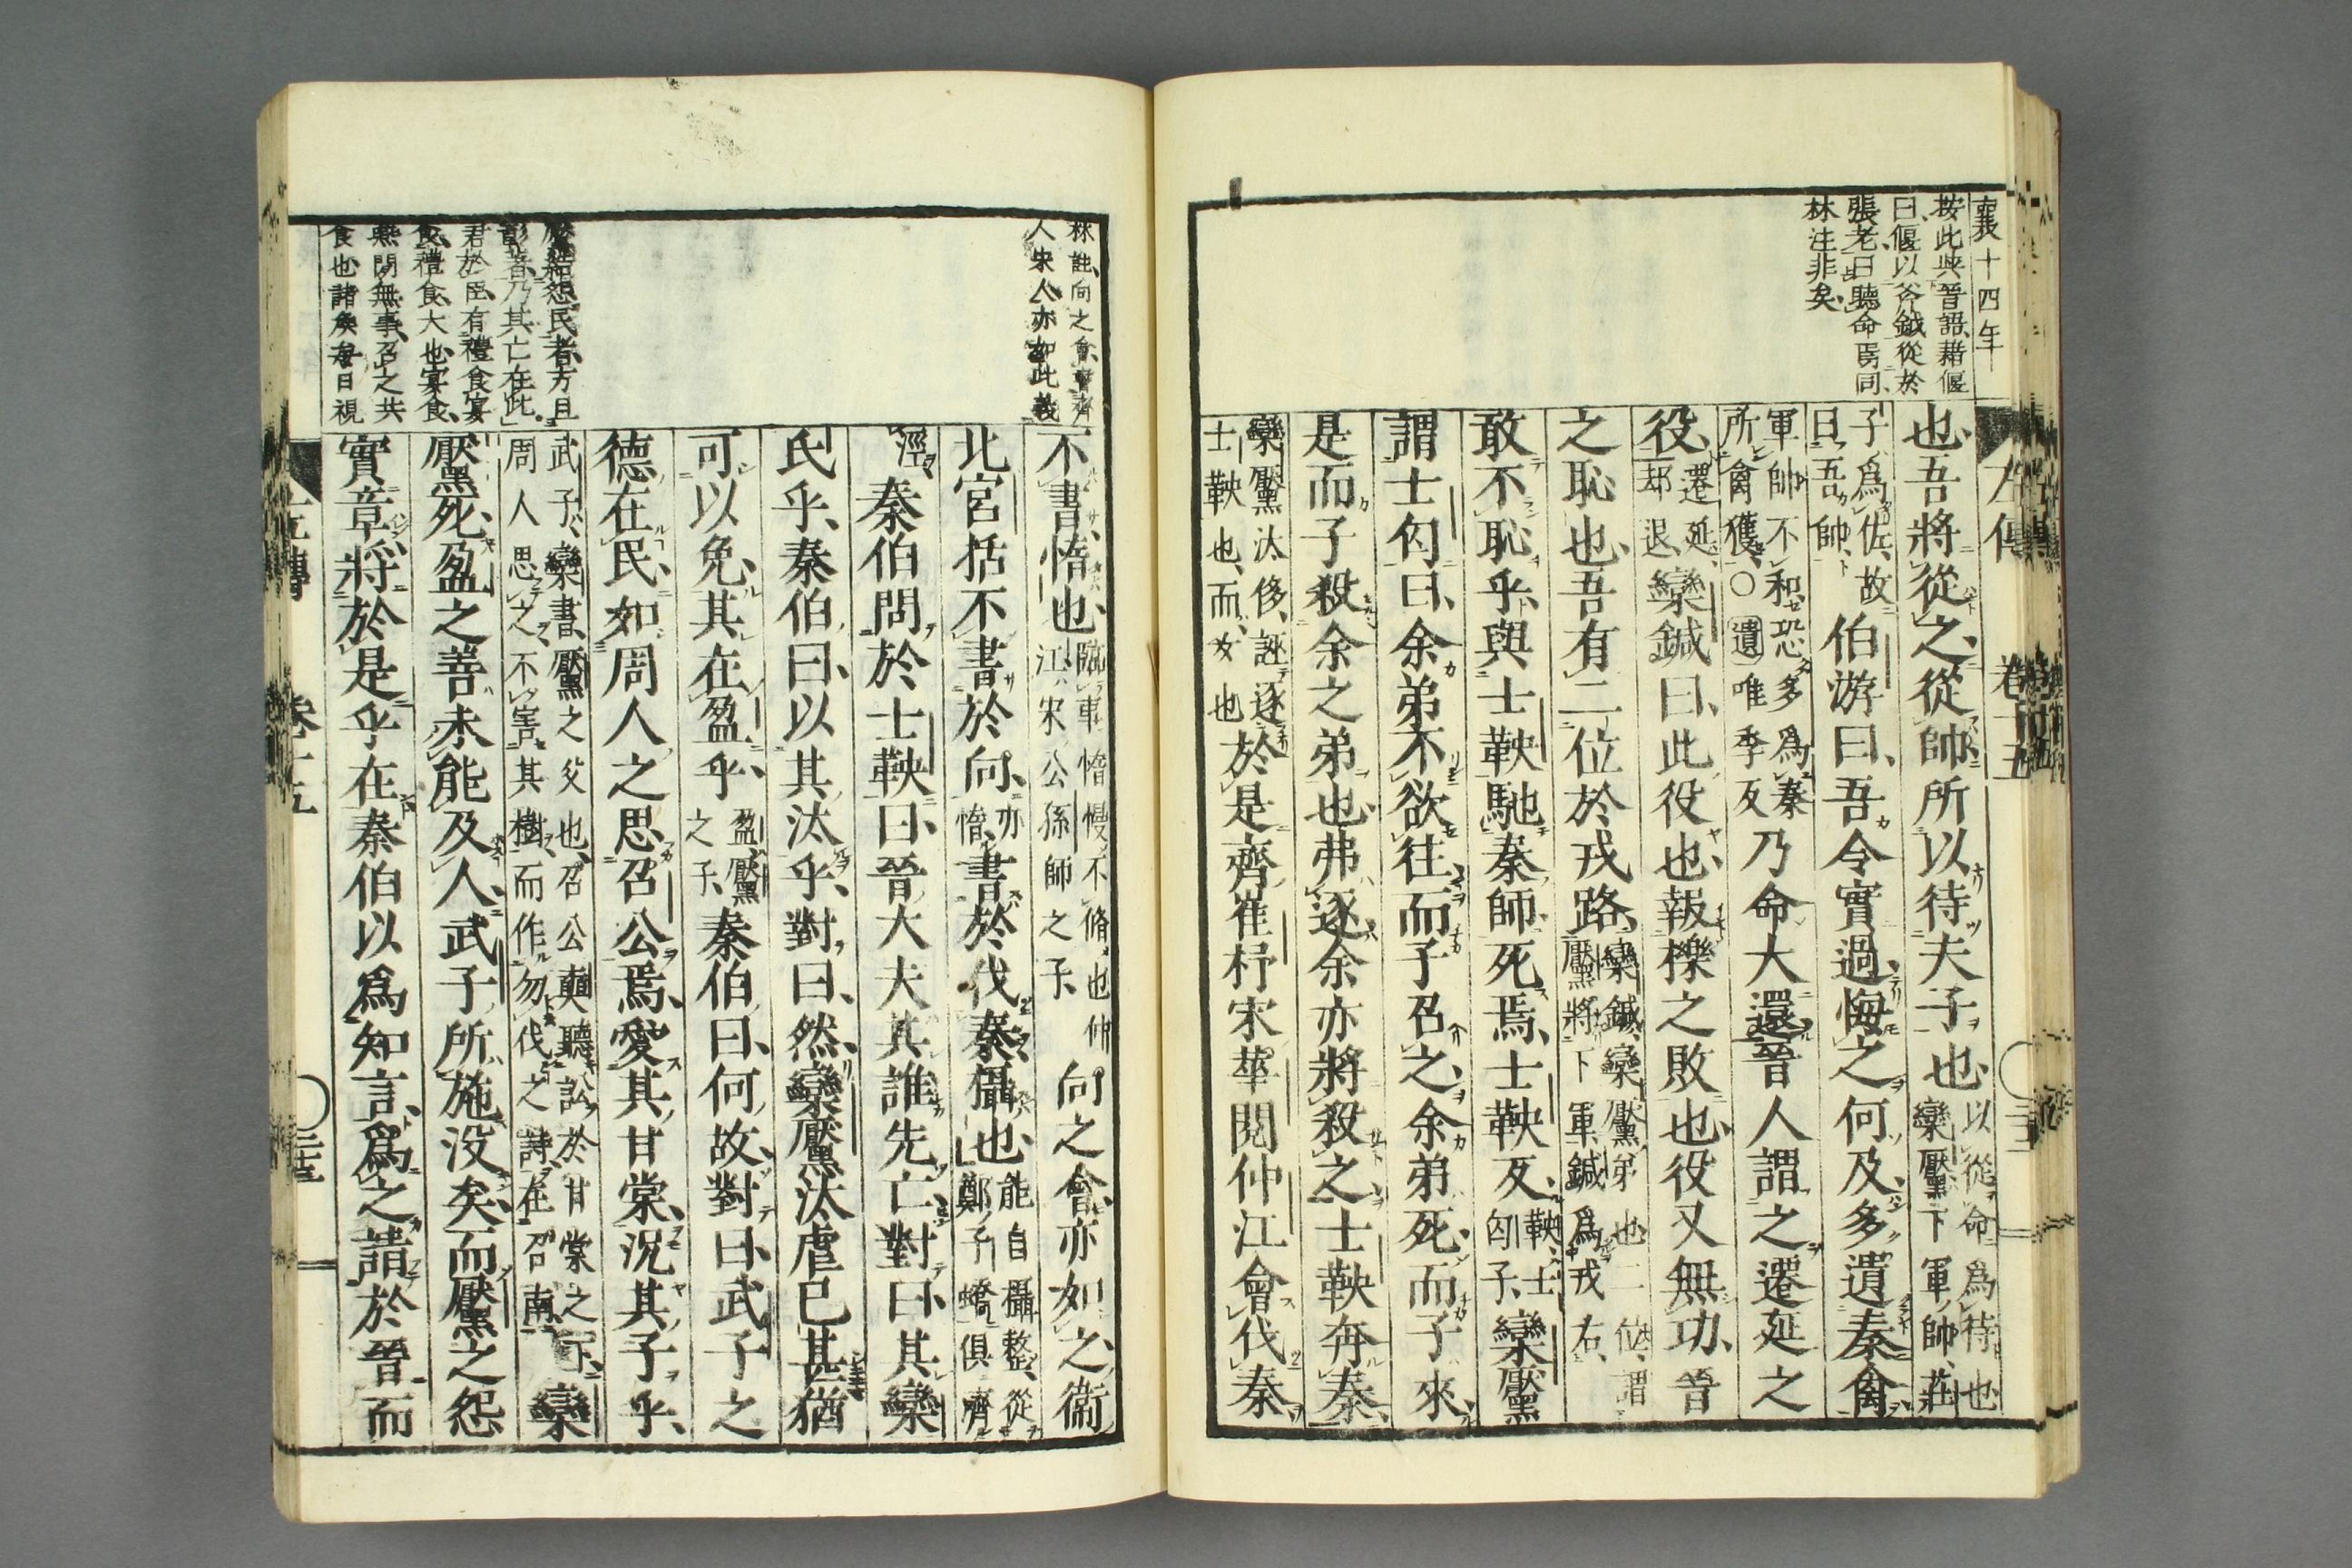 襄十四年
按此與晉語、藉偃
曰、偃以斧鉞從於
張老、曰聽命焉同、
林注非矣、
也、吾將從之、從帥所以待夫子也、以從命爲待也
欒黶下軍帥、莊
子爲佐、故
曰吾帥、伯游曰、吾令實過、悔之何及、多遺秦禽、
軍帥不和、恐多爲秦
所禽獲、○遺唯季反乃命大還、晉人謂之遷延之
役、遷延、
却退、欒鍼曰、此役也、報櫟之敗也、役又無功、晉
之恥也、吾有二位於戎路、欒鍼、欒黶弟也、二位、謂
黶將下軍、鍼爲戎右、
敢不恥乎、與士鞅馳秦師死焉、士鞅反、鞅、士
匃子、欒黶
謂士匃曰、余弟不欲往、而子召之、余弟死、而子來、
是而子殺余之弟也、弗逐、余亦將殺之、士鞅奔秦、
欒黶汰侈、誣逐
士鞅也、而、女也於是齊崔杼宋華閱仲江會伐秦、
左傳 卷十五
林註、向之會、書齊
人宋人、亦如此義
不書、惰也、臨事惰慢、不脩也、仲
江、宋公孫師之子、向之會、亦如之、衞
北宮括不書於向、亦
惰、書於伐秦、攝也、能自攝整、從
鄭子蟜俱濟
涇、秦伯問於士鞅曰、晉大夫其誰先亡、對曰、其欒
氏乎、秦伯曰、以其汰乎、對曰、然、欒黶汰虐已甚、猶
可以免、其在盈乎、盈、黶
之子、秦伯曰、何故、對曰、武子之
德在民、如周人之思召公焉、愛其甘棠、況其子乎、
武子、欒書、黶之父也、召公奭聽訟於甘棠之下、
周人思之、不害其樹、而作勿伐之詩、在召南、欒
黶死、盈之善未能及人、武子所施沒矣、而黶之怨
實章、將於是乎在、秦伯以爲知言、爲之請於晉、而
黶結怨民者、方且
彰著、乃其亡在此、
君於臣、有禮食宴
食、禮食、大也、宴食、
無事、召之共
食也、諸矦每日視
左傳 卷十五